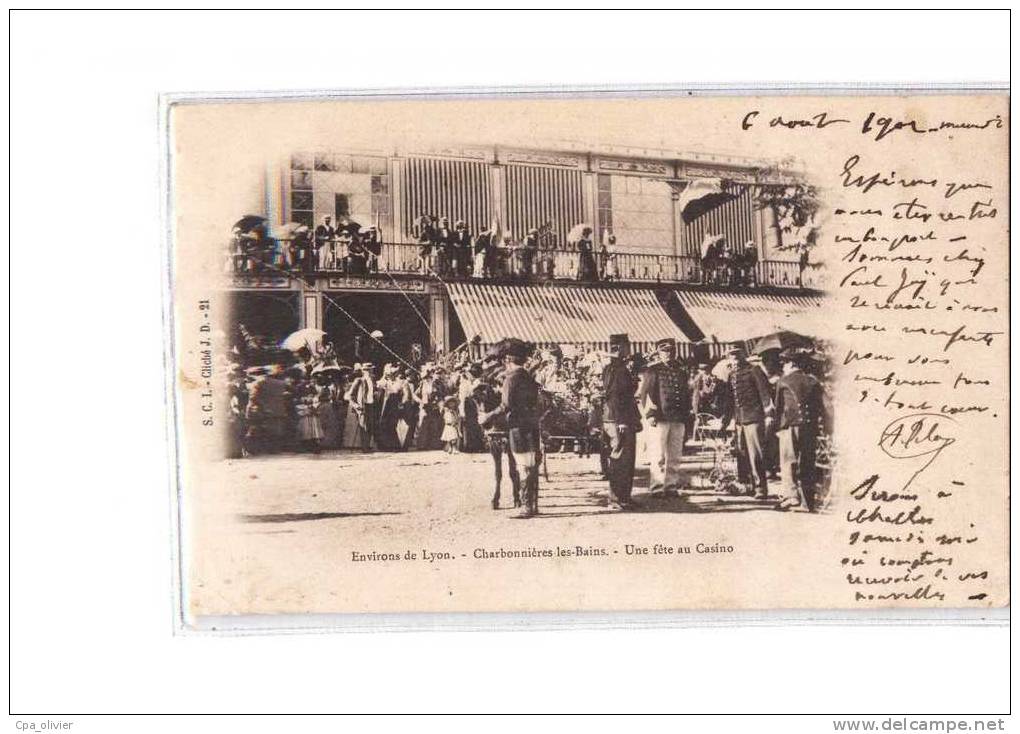 6 aout 1902
Espérons que
vous êtes rentrés
en bon port -
Sommes chez
Paul
à vous
pour vous
embrasser tous
de tout coeur.
Serons à
samedi soir
où comptons
recevoir de vos
nouvelles -
S. C. I. - Cliché J. D. - 21
Environs de Lyon. - Charbonnières-les-Bains. - Une fête au Casino
Cpa_olivier
www.delcampe.net